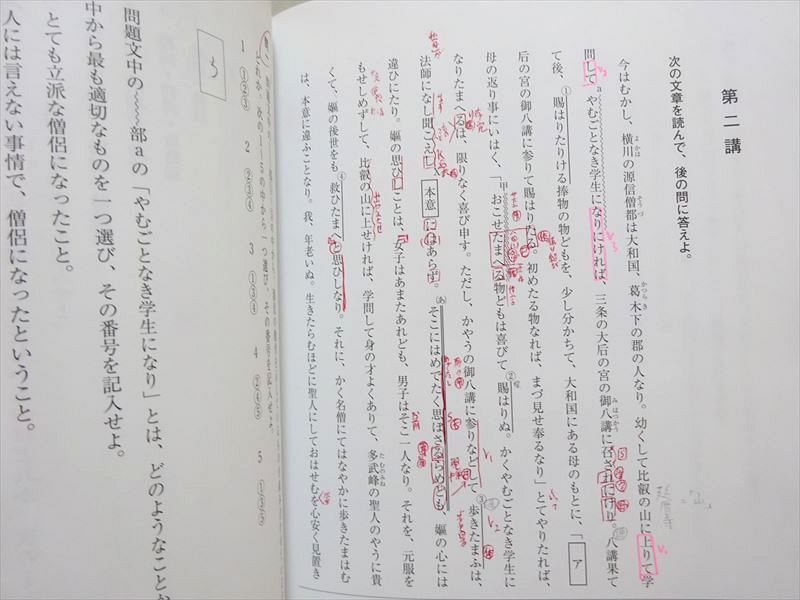 第二講
次の文章を読んで、後の問に答えよ。
今はむかし、横川の源信僧都は大和国、葛木下の郡の人なり。幼くして比叡の山に上りて学
問してaやむごとなき学生になりにければ、三条の大后の宮の御八講に召されにけり。八講果て
て後、①賜はりたりける捧物の物どもを、少し分かちて、大和国にある母のもとに、「ア
后の宮の御八講に参りて賜はりたる。初めたる物なれば、まづ見せ奉るなり」とてやりたれば、
母の返り事にいはく、「甲おこせたまへる物どもは喜びて②賜はりぬ。かくやむごとなき学生に
なりたまへるは、限りなく喜び申す。ただし、かやうの御八講に参りなどして③歩きたまふは、
法師になし聞こえしX本意にはあらず。あそこにはめでたく思はさるらめども、嫗の心には
違ひにたり。嫗の思ひしことは、『女子はあまたあれども、男子はそこ一人なり。それを、元服を
もせしめずして、比叡の山に上せければ、学問して身の才よくありて、多武峰の聖人のやうに貴
くて、嫗の後世をも④救ひたまへと思ひしなり。それに、かく名僧にてはなやかに歩きたまはむ
は、本意に違ふことなり。我、年老いぬ。生きたらむほどに聖人にしておはせむを心安く見置き
1 ①②③ 2 ②③④ 3 ①③④ 4 ②④⑤ 5 ①②⑤
う
問題文中の部aの「やむごとなき学生になり」とは、どのようなことか
中から最も適切なものを一つ選び、その番号を記入せよ。
とても立派な僧侶になったこと。
人には言えない事情で、僧侶になったということ。